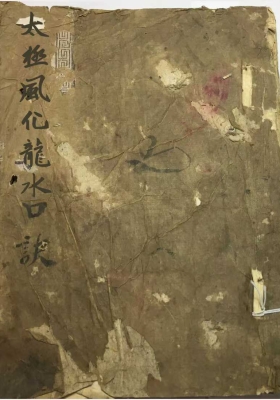 太極風化龍水口訣